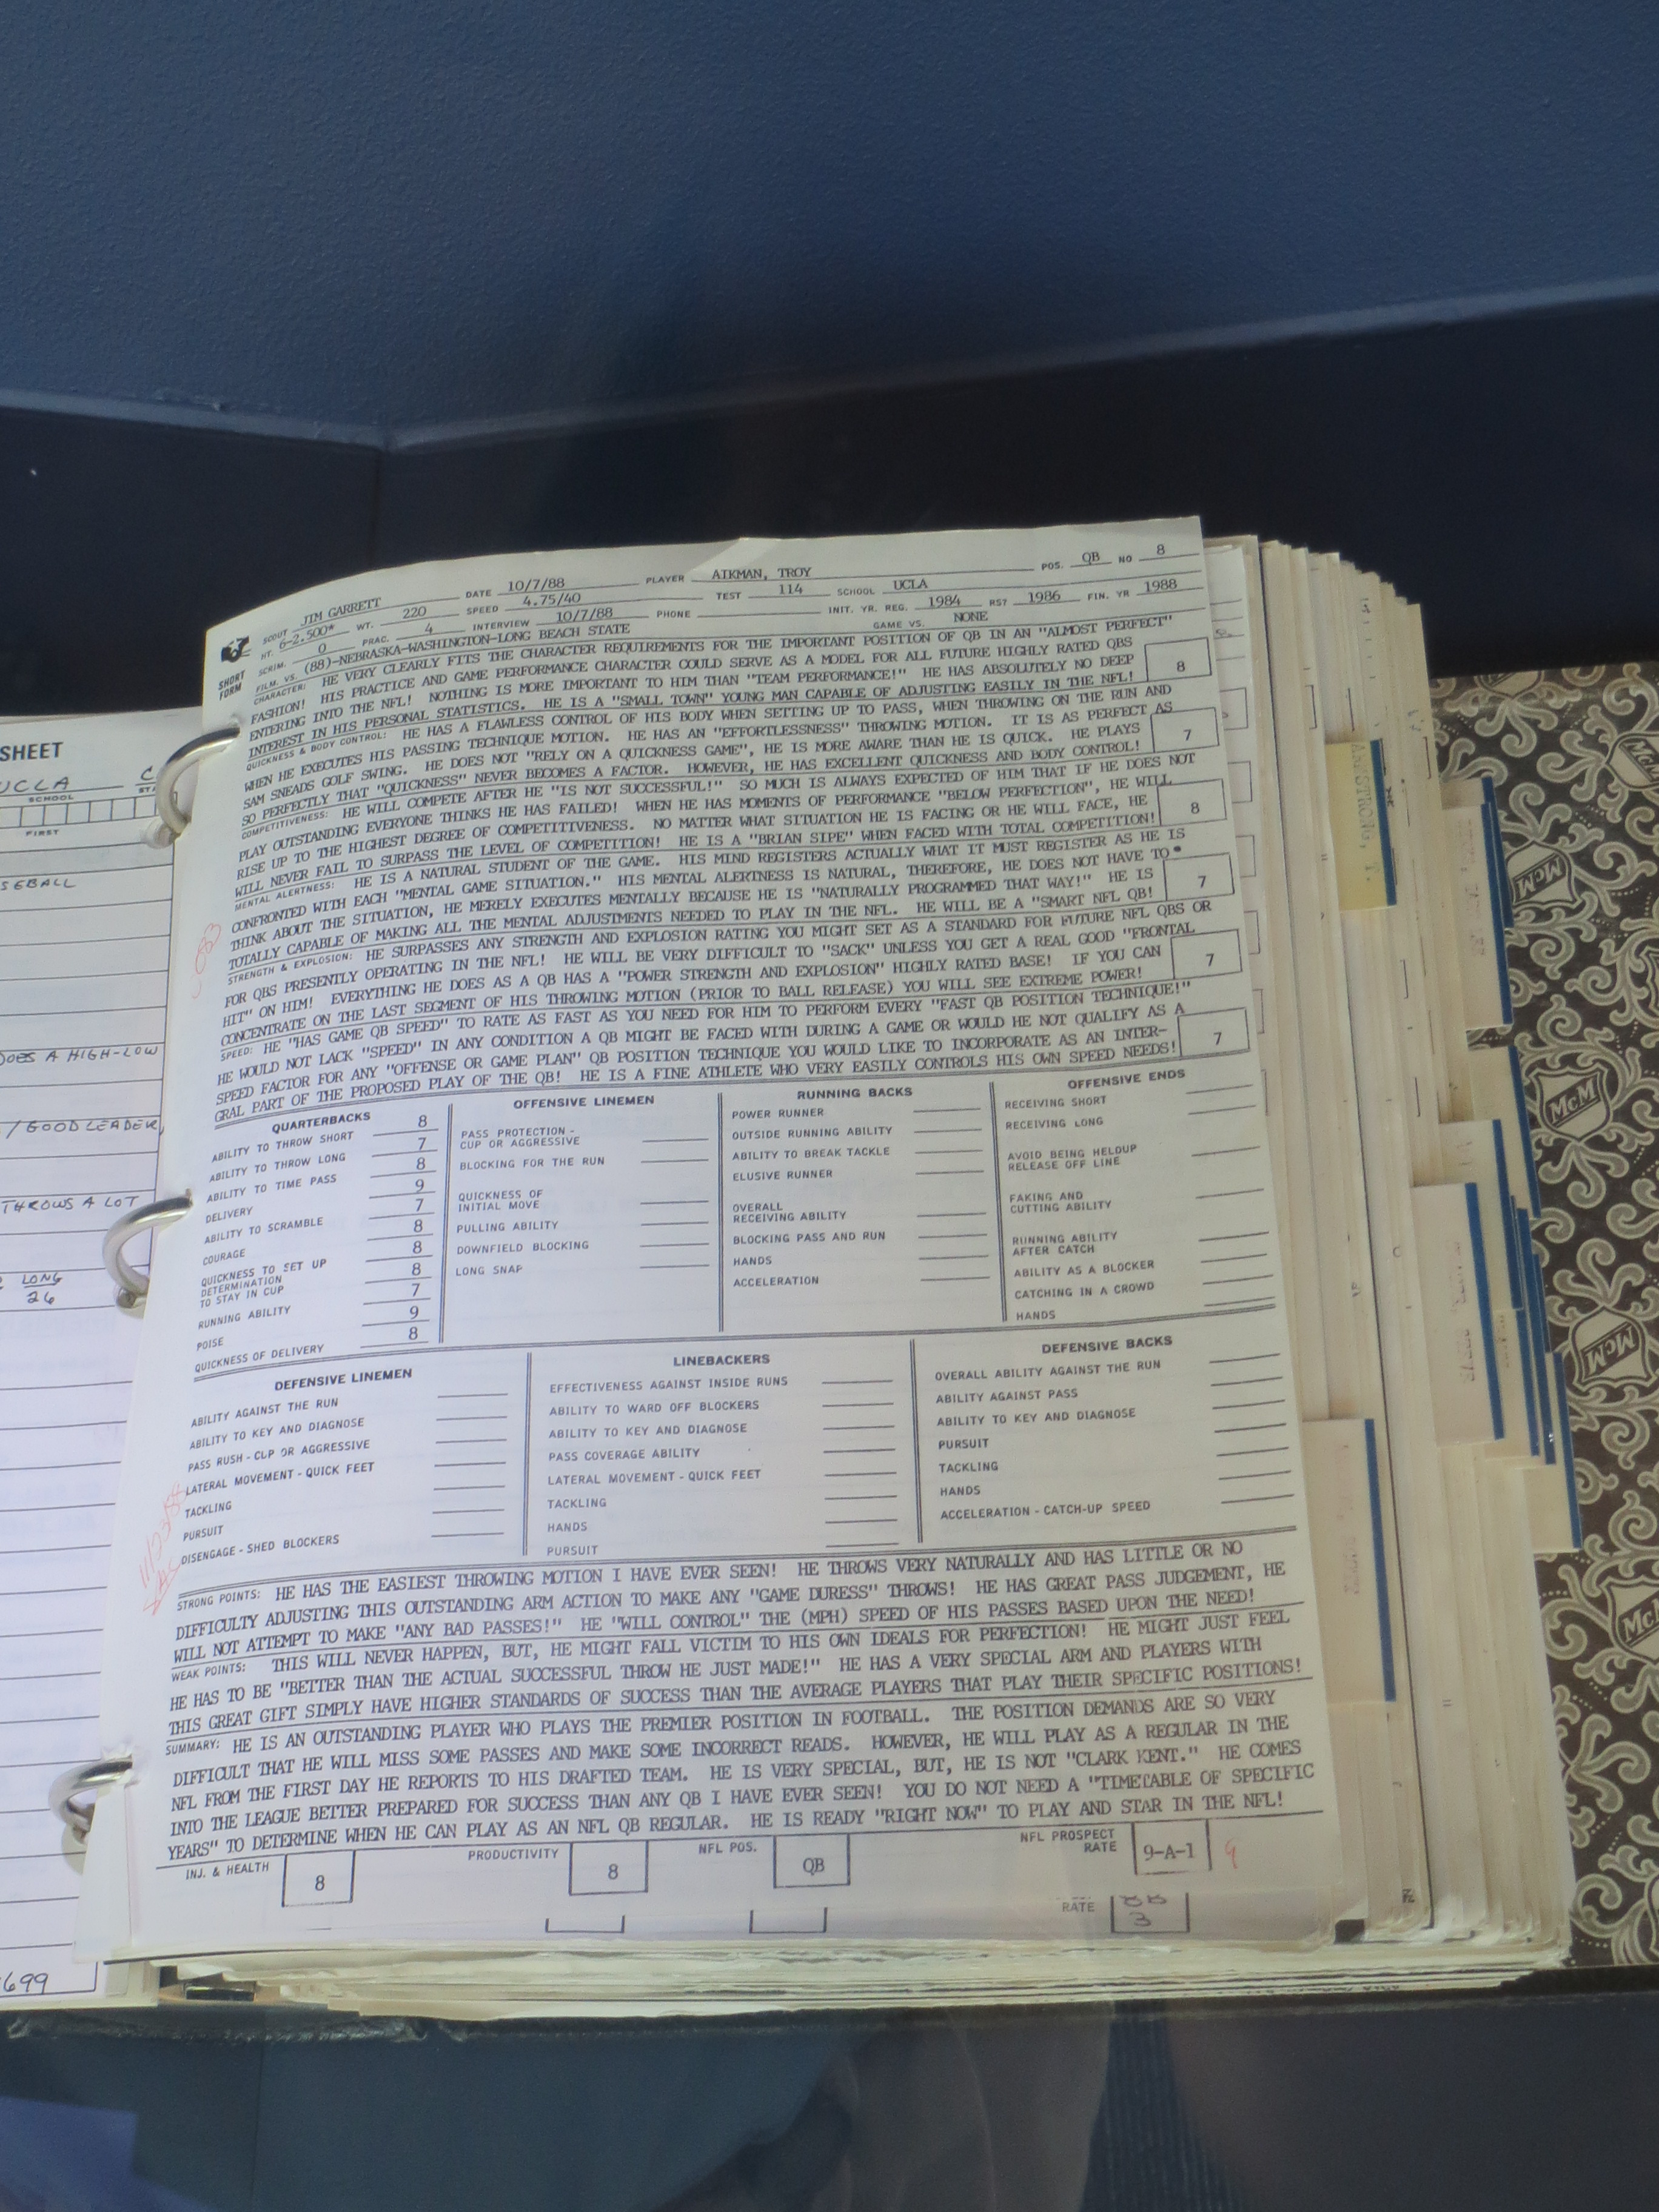 SHEET
UCLA
SCHOOL
FIRST
DOES A HIGH-LOW
/ GOOD LEADER
THROWS A LOT
LONG
26
699
SHORT FORM
SCOUT JIM GARRETT DATE 10/7/88 PLAYER AIKMAN, TROY POS. QB NO 8
HT. 6-2.500* WT. 220 SPEED 4.75/40 TEST 114 SCHOOL UCLA
SCRIM. 0 PRAC. 4 INTERVIEW 10/7/88 PHONE INIT. YR. REG. 1984 RS? 1986 FIN. YR 1988
FILM. VS. (88)-NEBRASKA-WASHINGTON-LONG BEACH STATE GAME VS. NONE
CHARACTER: HE VERY CLEARLY FITS THE CHARACTER REQUIREMENTS FOR THE IMPORTANT POSITION OF QB IN AN "ALMOST PERFECT"
FASHION! HIS PRACTICE AND GAME PERFORMANCE CHARACTER COULD SERVE AS A MODEL FOR ALL FUTURE HIGHLY RATED QBS
ENTERING INTO THE NFL! NOTHING IS MORE IMPORTANT TO HIM THAN "TEAM PERFORMANCE!" HE HAS ABSOLUTELY NO DEEP 8
INTEREST IN HIS PERSONAL STATISTICS. HE IS A "SMALL TOWN" YOUNG MAN CAPABLE OF ADJUSTING EASILY IN THE NFL!
QUICKNESS & BODY CONTROL: HE HAS A FLAWLESS CONTROL OF HIS BODY WHEN SETTING UP TO PASS, WHEN THROWING ON THE RUN AND
WHEN HE EXECUTES HIS PASSING TECHNIQUE MOTION. HE HAS AN "EFFORTLESSNESS" THROWING MOTION. IT IS AS PERFECT AS
SAM SNEADS GOLF SWING. HE DOES NOT "RELY ON A QUICKNESS GAME", HE IS MORE AWARE THAN HE IS QUICK. HE PLAYS 7
SO PERFECTLY THAT "QUICKNESS" NEVER BECOMES A FACTOR. HOWEVER, HE HAS EXCELLENT QUICKNESS AND BODY CONTROL!
COMPETITIVENESS: HE WILL COMPETE AFTER HE "IS NOT SUCCESSFUL!" SO MUCH IS ALWAYS EXPECTED OF HIM THAT IF HE DOES NOT
PLAY OUTSTANDING EVERYONE THINKS HE HAS FAILED! WHEN HE HAS MOMENTS OF PERFORMANCE "BELOW PERFECTION", HE WILL
RISE UP TO THE HIGHEST DEGREE OF COMPETITIVENESS. NO MATTER WHAT SITUATION HE IS FACING OR HE WILL FACE, HE 8
WILL NEVER FAIL TO SURPASS THE LEVEL OF COMPETITION! HE IS A "BRIAN SIPE" WHEN FACED WITH TOTAL COMPETITION!
MENTAL ALERTNESS: HE IS A NATURAL STUDENT OF THE GAME. HIS MIND REGISTERS ACTUALLY WHAT IT MUST REGISTER AS HE IS
CONFRONTED WITH EACH "MENTAL GAME SITUATION." HIS MENTAL ALERTNESS IS NATURAL, THEREFORE, HE DOES NOT HAVE TO
THINK ABOUT THE SITUATION, HE MERELY EXECUTES MENTALLY BECAUSE HE IS "NATURALLY PROGRAMMED THAT WAY!" HE IS 7
TOTALLY CAPABLE OF MAKING ALL THE MENTAL ADJUSTMENTS NEEDED TO PLAY IN THE NFL. HE WILL BE A "SMART NFL QB!
STRENGTH & EXPLOSION: HE SURPASSES ANY STRENGTH AND EXPLOSION RATING YOU MIGHT SET AS A STANDARD FOR FUTURE NFL QBS OR
FOR QBS PRESENTLY OPERATING IN THE NFL! HE WILL BE VERY DIFFICULT TO "SACK" UNLESS YOU GET A REAL GOOD "FRONTAL
HIT" ON HIM! EVERYTHING HE DOES AS A QB HAS A "POWER STRENGTH AND EXPLOSION" HIGHLY RATED BASE! IF YOU CAN 7
CONCENTRATE ON THE LAST SEGMENT OF HIS THROWING MOTION (PRIOR TO BALL RELEASE) YOU WILL SEE EXTREME POWER!
SPEED: HE "HAS GAME QB SPEED" TO RATE AS FAST AS YOU NEED FOR HIM TO PERFORM EVERY "FAST QB POSITION TECHNIQUE!"
HE WOULD NOT LACK "SPEED" IN ANY CONDITION A QB MIGHT BE FACED WITH DURING A GAME OR WOULD HE NOT QUALIFY AS A
SPEED FACTOR FOR ANY "OFFENSE OR GAME PLAN" QB POSITION TECHNIQUE YOU WOULD LIKE TO INCORPORATE AS AN INTER- 7
GRAL PART OF THE PROPOSED PLAY OF THE QB! HE IS A FINE ATHLETE WHO VERY EASILY CONTROLS HIS OWN SPEED NEEDS!
QUARTERBACKS
ABILITY TO THROW SHORT 8
ABILITY TO THROW LONG 7
ABILITY TO TIME PASS 8
DELIVERY 9
ABILITY TO SCRAMBLE 7
COURAGE 8
QUICKNESS TO SET UP 8
DETERMINATION
TO STAY IN CUP 8
RUNNING ABILITY 7
POISE 9
QUICKNESS OF DELIVERY 8
OFFENSIVE LINEMEN
PASS PROTECTION -
CUP OR AGGRESSIVE
BLOCKING FOR THE RUN
QUICKNESS OF
INITIAL MOVE
PULLING ABILITY
DOWNFIELD BLOCKING
LONG SNAP
RUNNING BACKS
POWER RUNNER
OUTSIDE RUNNING ABILITY
ABILITY TO BREAK TACKLE
ELUSIVE RUNNER
OVERALL
RECEIVING ABILITY
BLOCKING PASS AND RUN
HANDS
ACCELERATION
OFFENSIVE ENDS
RECEIVING SHORT
RECEIVING LONG
AVOID BEING HELDUP
RELEASE OFF LINE
FAKING AND
CUTTING ABILITY
RUNNING ABILITY
AFTER CATCH
ABILITY AS A BLOCKER
CATCHING IN A CROWD
HANDS
DEFENSIVE LINEMEN
ABILITY AGAINST THE RUN
ABILITY TO KEY AND DIAGNOSE
PASS RUSH - CUP OR AGGRESSIVE
LATERAL MOVEMENT - QUICK FEET
TACKLING
PURSUIT
DISENGAGE - SHED BLOCKERS
LINEBACKERS
EFFECTIVENESS AGAINST INSIDE RUNS
ABILITY TO WARD OFF BLOCKERS
ABILITY TO KEY AND DIAGNOSE
PASS COVERAGE ABILITY
LATERAL MOVEMENT - QUICK FEET
TACKLING
HANDS
PURSUIT
DEFENSIVE BACKS
OVERALL ABILITY AGAINST THE RUN
ABILITY AGAINST PASS
ABILITY TO KEY AND DIAGNOSE
PURSUIT
TACKLING
HANDS
ACCELERATION - CATCH-UP SPEED
STRONG POINTS: HE HAS THE EASIEST THROWING MOTION I HAVE EVER SEEN! HE THROWS VERY NATURALLY AND HAS LITTLE OR NO
DIFFICULTY ADJUSTING THIS OUTSTANDING ARM ACTION TO MAKE ANY "GAME DURESS" THROWS! HE HAS GREAT PASS JUDGEMENT, HE
WILL NOT ATTEMPT TO MAKE "ANY BAD PASSES!" HE "WILL CONTROL" THE (MPH) SPEED OF HIS PASSES BASED UPON THE NEED!
WEAK POINTS: THIS WILL NEVER HAPPEN, BUT, HE MIGHT FALL VICTIM TO HIS OWN IDEALS FOR PERFECTION! HE MIGHT JUST FEEL
HE HAS TO BE "BETTER THAN THE ACTUAL SUCCESSFUL THROW HE JUST MADE!" HE HAS A VERY SPECIAL ARM AND PLAYERS WITH
THIS GREAT GIFT SIMPLY HAVE HIGHER STANDARDS OF SUCCESS THAN THE AVERAGE PLAYERS THAT PLAY THEIR SPECIFIC POSITIONS!
SUMMARY: HE IS AN OUTSTANDING PLAYER WHO PLAYS THE PREMIER POSITION IN FOOTBALL. THE POSITION DEMANDS ARE SO VERY
DIFFICULT THAT HE WILL MISS SOME PASSES AND MAKE SOME INCORRECT READS. HOWEVER, HE WILL PLAY AS A REGULAR IN THE
NFL FROM THE FIRST DAY HE REPORTS TO HIS DRAFTED TEAM. HE IS VERY SPECIAL, BUT, HE IS NOT "CLARK KENT." HE COMES
INTO THE LEAGUE BETTER PREPARED FOR SUCCESS THAN ANY QB I HAVE EVER SEEN! YOU DO NOT NEED A "TIMETABLE OF SPECIFIC
YEARS" TO DETERMINE WHEN HE CAN PLAY AS AN NFL QB REGULAR. HE IS READY "RIGHT NOW" TO PLAY AND STAR IN THE NFL!
INJ. & HEALTH 8 PRODUCTIVITY 8 NFL POS. QB NFL PROSPECT RATE 9-A-1 9
RATE 3
ARMSTRONG, T.
McM
McM
McM
McM